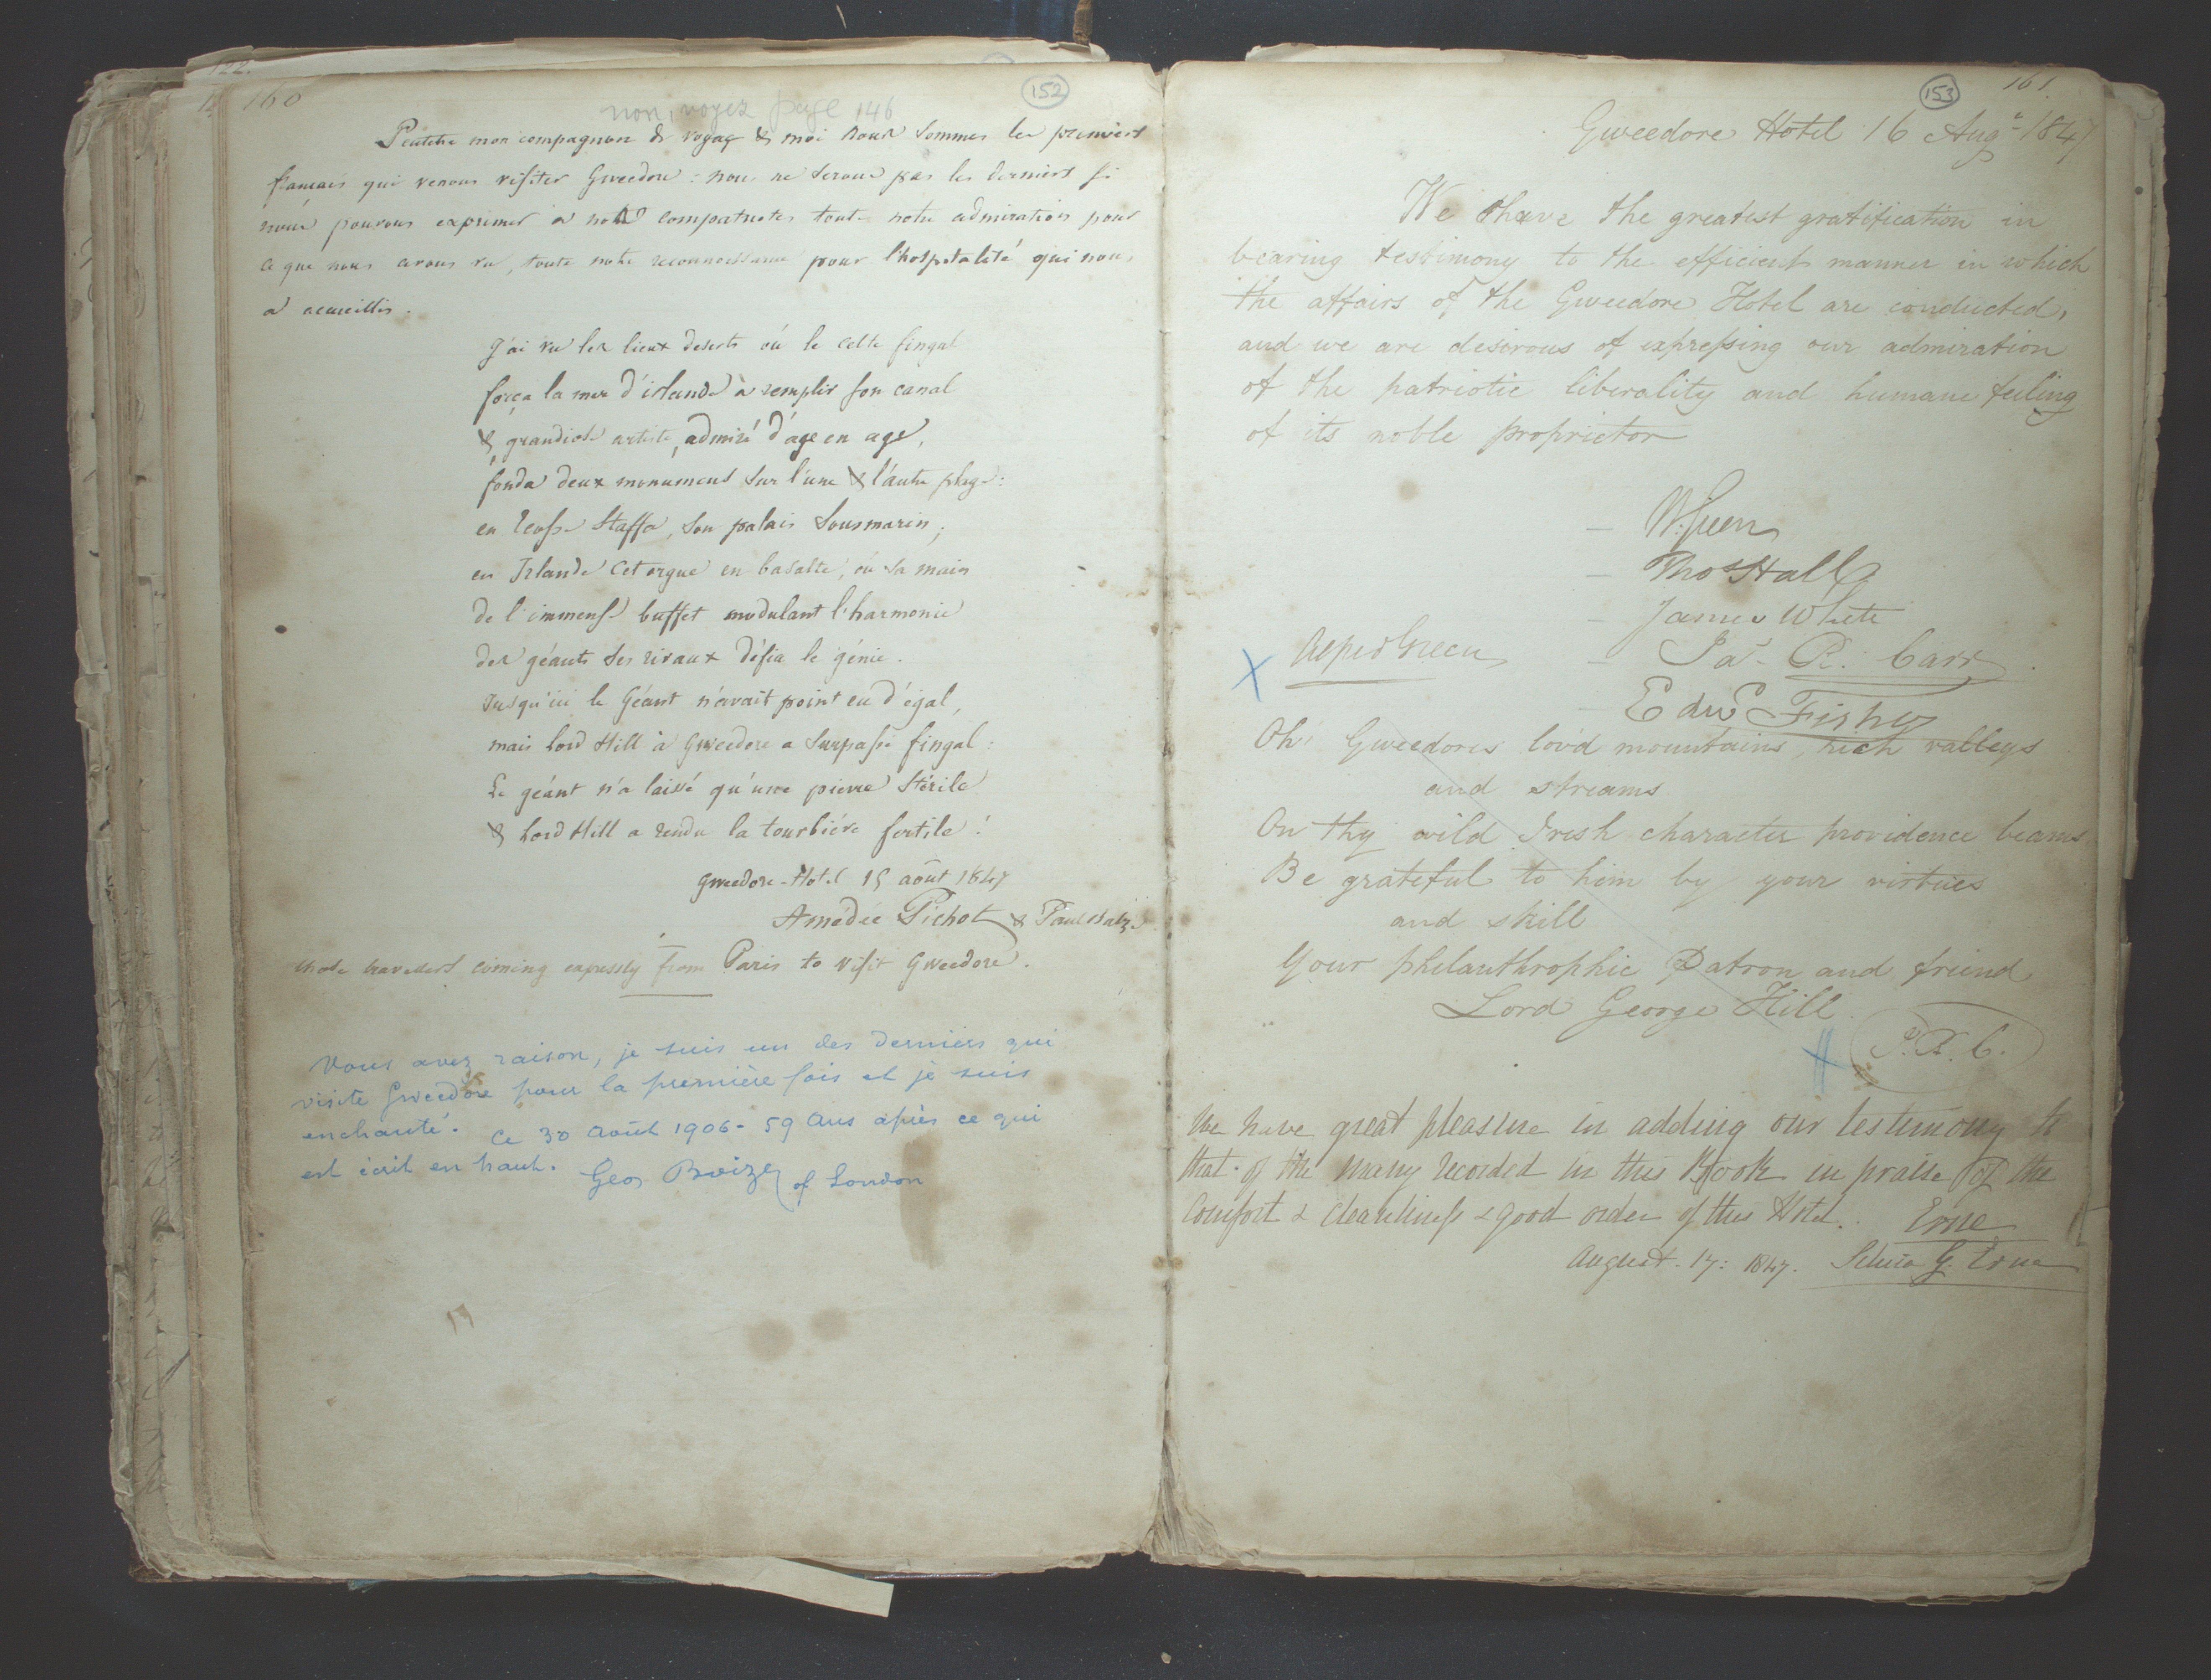 160
152
non, voyez page 146
Peutetre mon compagnon de voyage & moi nous sommes les premiers
français qui venons visiter Gweedore : nous ne serons pas les derniers si
nous pouvons exprimer à nos compatriotes toute notre admiration pour
ce que nous avons vu, toute notre reconnoissance pour l'hospitalité qui nous
a accueillis.
J'ai vu les lieux deserts où le celte fingal
força la mer d'irlande à remplir son canal
& grandiose artiste, admiré d'age en age,
fonda deux monumens sur l'une & l'autre plage :
en Ecosse Staffa, son palais sousmarin ;
en Irlande cet orgue en basalte, où sa main
de l'immense buffet modulant l'harmonie
des géants ses rivaux défia le génie.
Jusqu'ici le Géant n'avait point eu d'égal,
mais Lord Hill à Gweedore a surpassé fingal :
Le géant n'a laissé qu'une pierre stérile
& Lord Hill a rendu la tourbière fertile !
Gweedore-Hotel 15 août 1847
Amédée Pichot & Paul
travellers coming expressly from Paris to visit Gweedore.
Vous avez raison, je suis un des derniers qui
visite Gweedore pour la première fois et je suis
enchanté. Ce 30 Août 1906 - 59 ans après ce qui
est écrit en haut. Geo. Boize of London
161
153
Gweedore Hotel 16 Augt 1847
We have the greatest gratification in
bearing testimony to the efficient manner in which
the affairs of the Gweedore Hotel are conducted,
and we are desirous of expressing our admiration
of the patriotic liberality and humane feeling
of its noble proprietor
W. Green
Thos Hall
James White
X Green
Jas. R. Carr
Edwd Fisher
Oh! Gweedores lov'd mountains, rich valleys
and streams
On thy wild Iresh character providence beams
Be grateful to him by your virtues
and skill
Your philanthrophic Patron and friend
Lord George Hill.
J. R. C.
We have great pleasure in adding our testimony to
that of the many recorded in this Book in praise of the
Comfort & cleanliness & good order of this Hotel. Erne
August. 17: 1847. Selina G. Erne